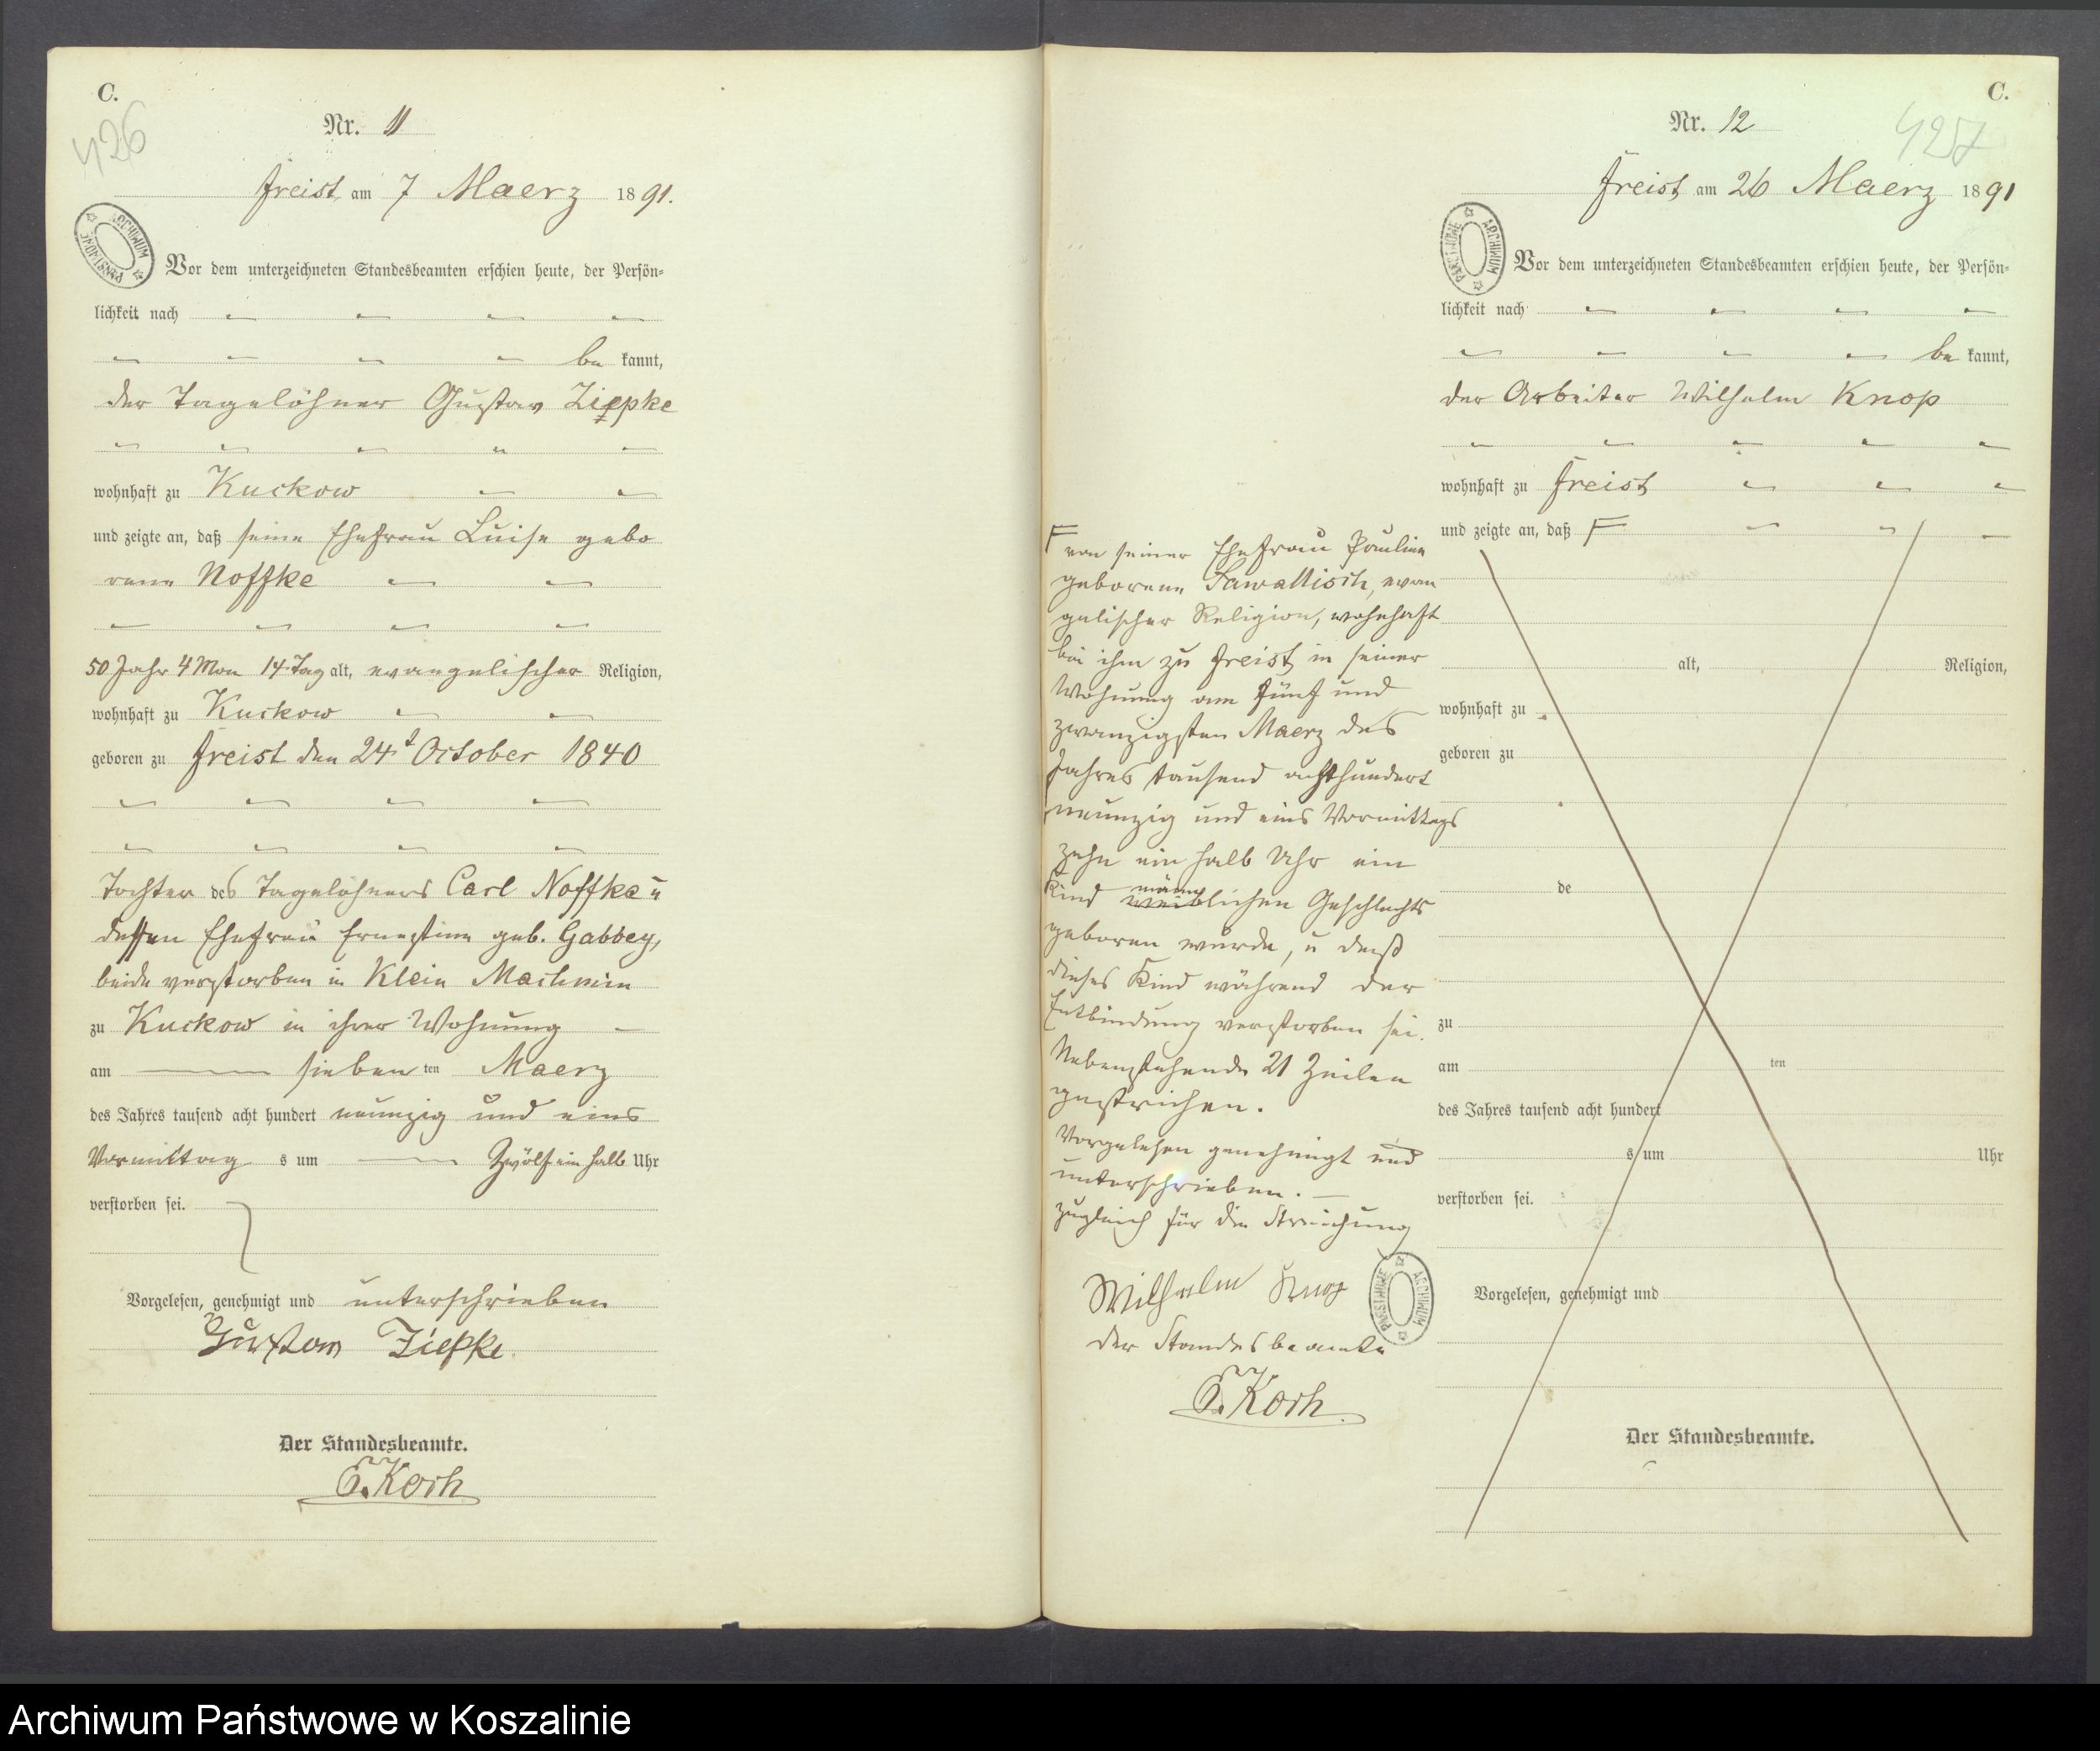 C.
426
Nr. 11
Freist am 7 Maerz 1891.
ARCHIWUM PAŃSTWOWE
Vor dem unterzeichneten Standesbeamten erschien heute, der Persön-
lichkeit nach
be kannt,
der Tagelöhner Gustav Ziepke
wohnhaft zu Kuckow
und zeigte an, daß seine Ehefrau Luise gebo
rene Noffke
50 Jahr 4 Mon 14 Tag alt, evangelischer Religion,
wohnhaft zu Kuckow
geboren zu Freist den 24t October 1840
Tochter des Tagelöhners Carl Noffke u
dessen Ehefrau Ernestine geb. Gabbey,
beide verstorben in Klein Machmin
zu Kuckow in ihrer Wohnung
am sieben ten Maerz
des Jahres tausend acht hundert neunzig und eins
Vormittag s um Zwölf ein halb Uhr
verstorben sei.
Vorgelesen, genehmigt und unterschrieben
Gustav Ziepke
Der Standesbeamte.
E. Koch
C.
427
Nr. 12
Freist am 26 Maerz 1891
ARCHIWUM PAŃSTWOWE
Vor dem unterzeichneten Standesbeamten erschien heute, der Persön-
lichkeit nach
be kannt,
der Arbeiter Wilhelm Knop
wohnhaft zu Freist
und zeigte an, daß F
F von seiner Ehefrau Pauline
geborene Sawallisch, evan
gelischer Religion, wohnhaft
bei ihm zu Freist in seiner
Wohnung am fünf und
zwanzigsten Maerz des
Jahres tausend achthundert
neunzig und eins Vormittags
zehn ein halb Uhr ein
Kind männ weiblichen Geschlechts
geboren wurde, u daß
dieses Kind während der
Entbindung verstorben sei.
Nebenstehende 21 Zeilen
gestrichen.
Vorgelesen genehmigt und
unterschrieben.
zugleich für die Streichung
Wilhelm Knop
der Standesbeamte
E. Koch
ARCHIWUM PAŃSTWOWE
alt, Religion,
wohnhaft zu
geboren zu
de
zu
am ten
des Jahres tausend acht hundert
s um Uhr
verstorben sei.
Vorgelesen, genehmigt und
Der Standesbeamte.
Archiwum Państwowe w Koszalinie